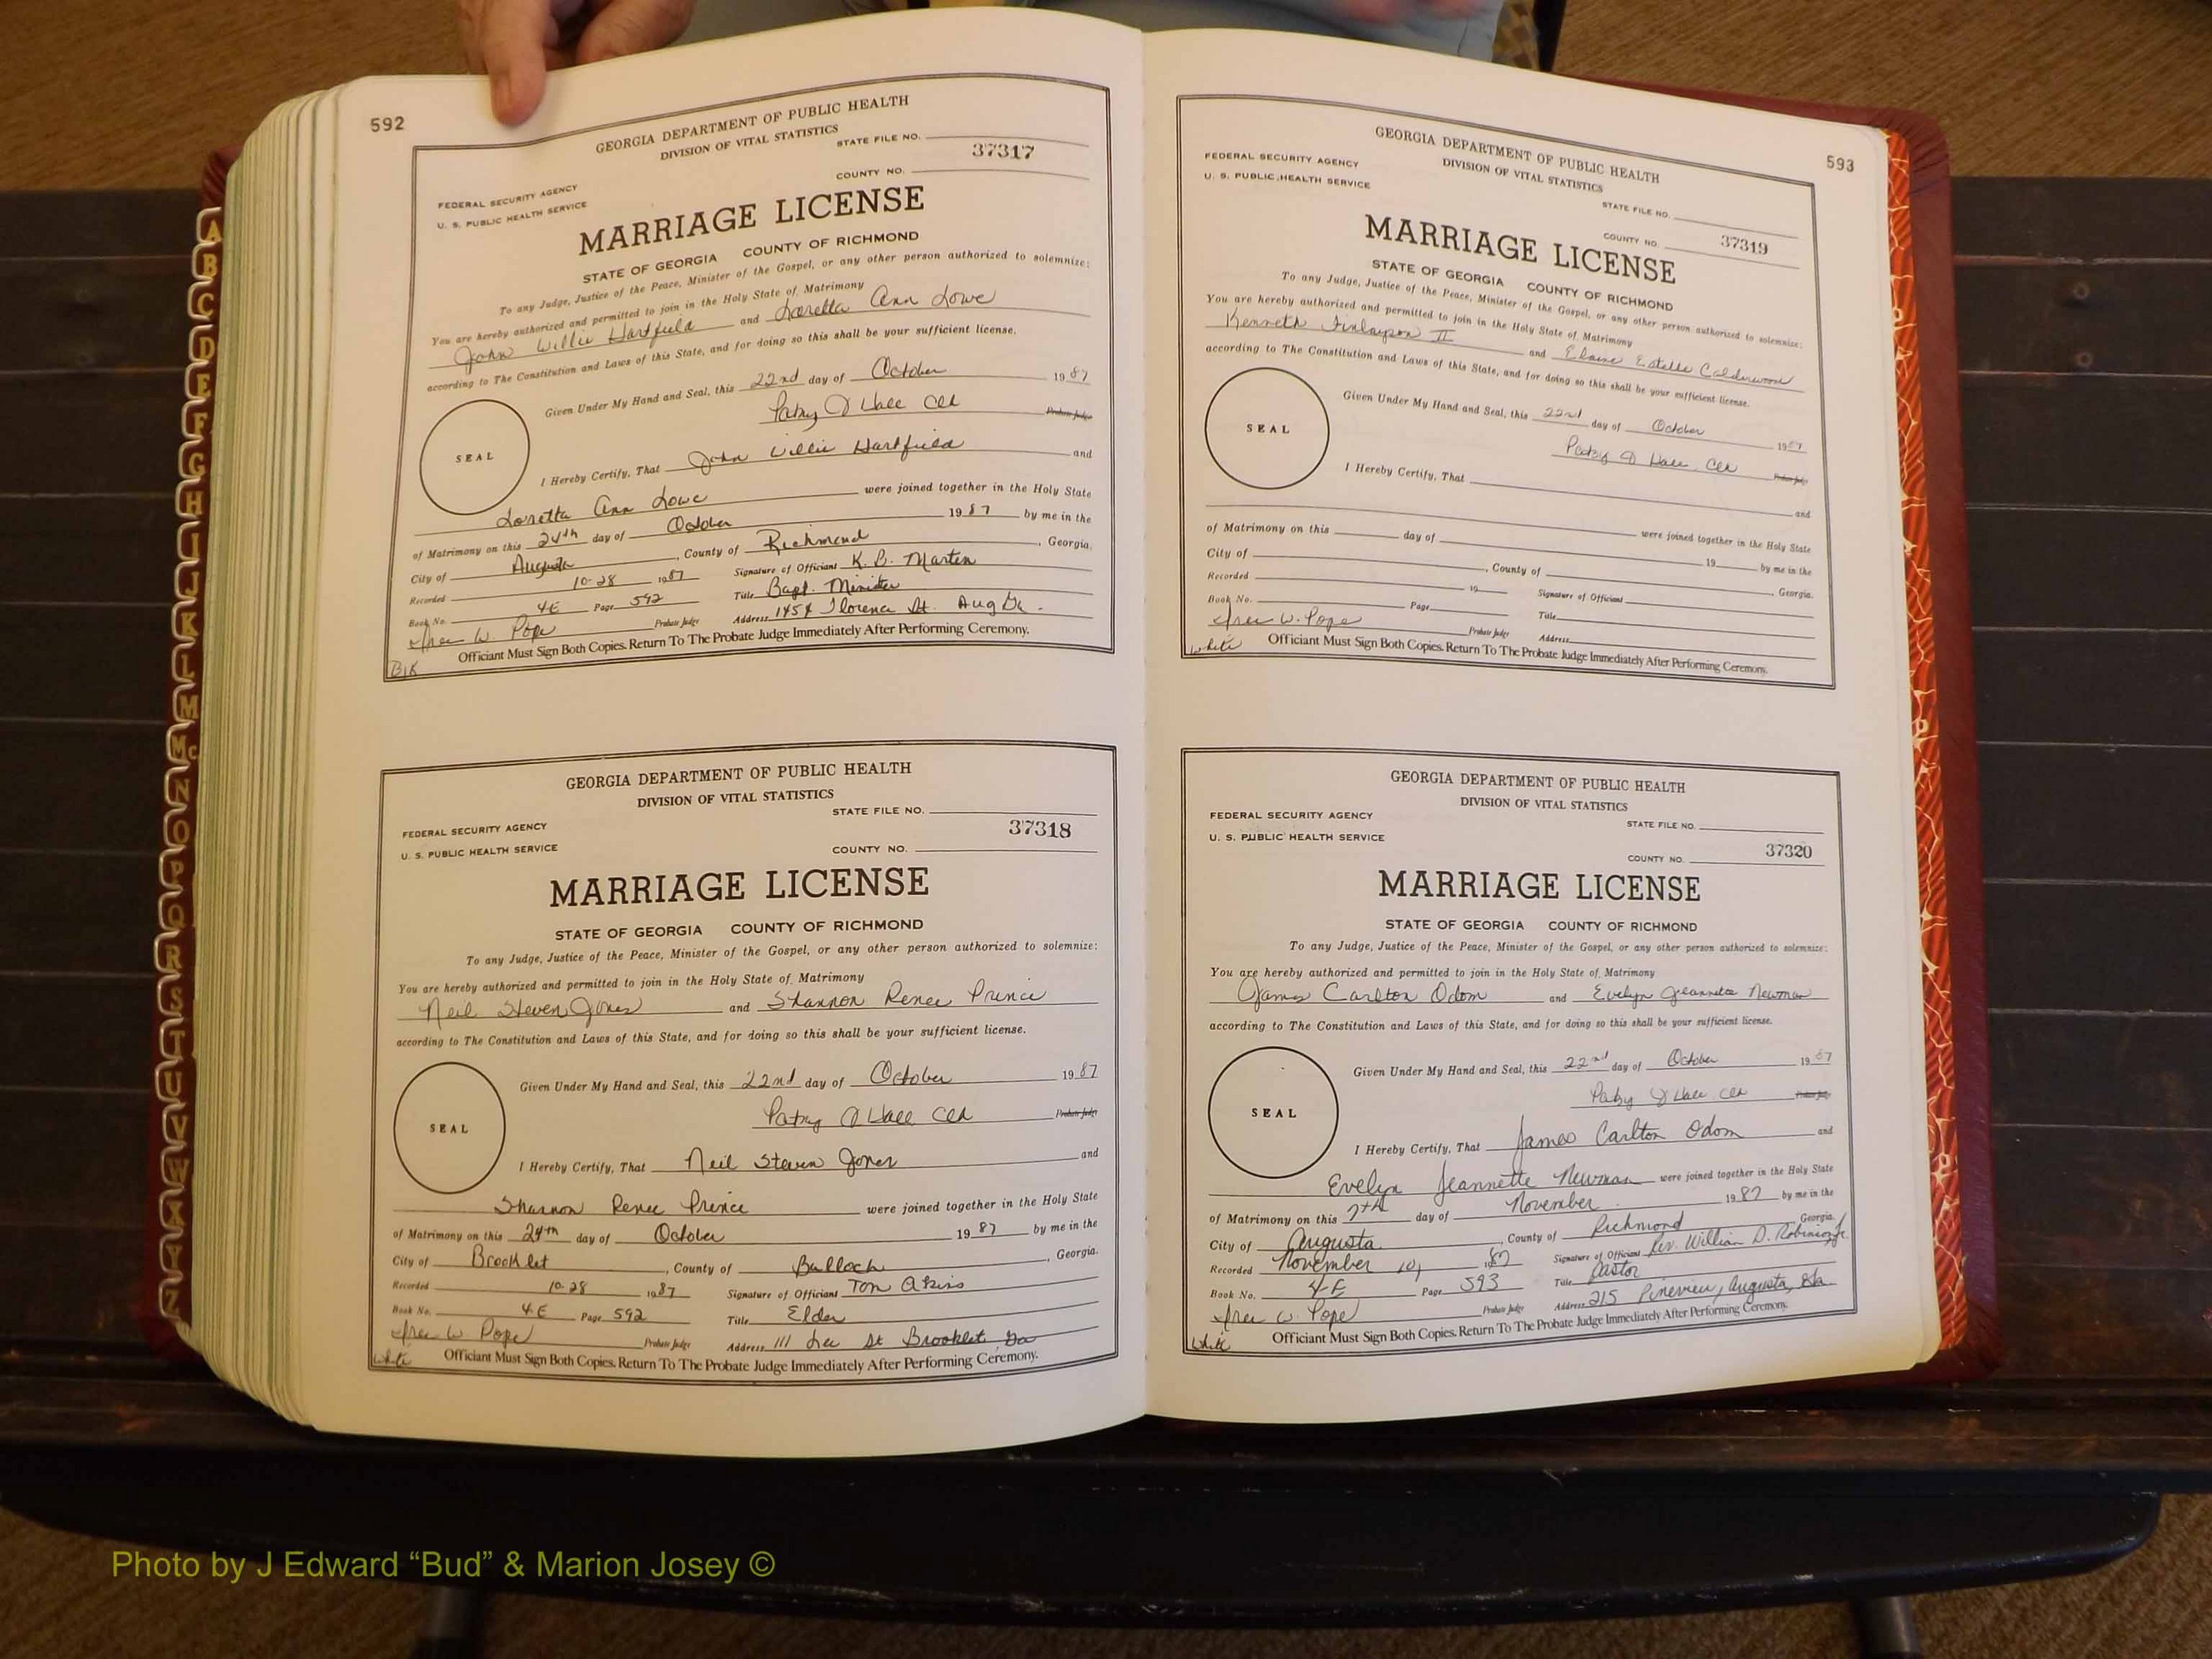 592
GEORGIA DEPARTMENT OF PUBLIC HEALTH
DIVISION OF VITAL STATISTICS
STATE FILE NO.
37317
COUNTY NO.
FEDERAL SECURITY AGENCY
U. S. PUBLIC HEALTH SERVICE
MARRIAGE LICENSE
STATE OF GEORGIA COUNTY OF RICHMOND
To any Judge, Justice of the Peace, Minister of the Gospel, or any other person authorized to solemnize:
You are hereby authorized and permitted to join in the Holy State of Matrimony
John Willie Hartfield and Loretta Ann Lowe
according to The Constitution and Laws of this State, and for doing so this shall be your sufficient license.
Given Under My Hand and Seal, this 22nd day of October 1987
Patsy Hall Clk Probate Judge
SEAL
I Hereby Certify, That John Willie Hartfield and
Loretta Ann Lowe were joined together in the Holy State
of Matrimony on this 24th day of October 1987 by me in the
City of Augusta, County of Richmond, Georgia.
Recorded 10-28 1987 Signature of Officiant K. B. Martin
Book No. 4E Page 592 Title Bapt. Minister
W. Pope Probate Judge Address 1454 Florence St. Aug Ga.
Officiant Must Sign Both Copies. Return To The Probate Judge Immediately After Performing Ceremony.
Blk
GEORGIA DEPARTMENT OF PUBLIC HEALTH
DIVISION OF VITAL STATISTICS
STATE FILE NO.
37318
FEDERAL SECURITY AGENCY
U. S. PUBLIC HEALTH SERVICE
COUNTY NO.
MARRIAGE LICENSE
STATE OF GEORGIA COUNTY OF RICHMOND
To any Judge, Justice of the Peace, Minister of the Gospel, or any other person authorized to solemnize:
You are hereby authorized and permitted to join in the Holy State of Matrimony
Neil Steven Jones and Shannon Renee Prince
according to The Constitution and Laws of this State, and for doing so this shall be your sufficient license.
Given Under My Hand and Seal, this 22nd day of October 1987
Patsy Hall Clk Probate Judge
SEAL
I Hereby Certify, That Neil Steven Jones and
Shannon Renee Prince were joined together in the Holy State
of Matrimony on this 24th day of October 1987 by me in the
City of Brooklet, County of Bulloch, Georgia.
Recorded 10-28 1987 Signature of Officiant Tom Akins
Book No. 4-E Page 592 Title Elder
W. Pope Probate Judge Address 111 Lee St Brooklet Ga
white Officiant Must Sign Both Copies. Return To The Probate Judge Immediately After Performing Ceremony.
593
GEORGIA DEPARTMENT OF PUBLIC HEALTH
DIVISION OF VITAL STATISTICS
FEDERAL SECURITY AGENCY
U. S. PUBLIC HEALTH SERVICE
STATE FILE NO.
COUNTY NO. 37319
MARRIAGE LICENSE
STATE OF GEORGIA COUNTY OF RICHMOND
To any Judge, Justice of the Peace, Minister of the Gospel, or any other person authorized to solemnize:
You are hereby authorized and permitted to join in the Holy State of Matrimony
Kenneth Finlayson II and Elaine Estelle Calderwood
according to The Constitution and Laws of this State, and for doing so this shall be your sufficient license.
Given Under My Hand and Seal, this 22nd day of October 1987
Patsy Hall Clk Probate Judge
SEAL
I Hereby Certify, That and
were joined together in the Holy State
of Matrimony on this day of 19 by me in the
City of , County of Georgia.
Recorded 19 Signature of Officiant
Book No. Page Title
W. Pope Probate Judge Address
white Officiant Must Sign Both Copies. Return To The Probate Judge Immediately After Performing Ceremony.
GEORGIA DEPARTMENT OF PUBLIC HEALTH
DIVISION OF VITAL STATISTICS
FEDERAL SECURITY AGENCY
STATE FILE NO.
U. S. PUBLIC HEALTH SERVICE
COUNTY NO. 37320
MARRIAGE LICENSE
STATE OF GEORGIA COUNTY OF RICHMOND
To any Judge, Justice of the Peace, Minister of the Gospel, or any other person authorized to solemnize:
You are hereby authorized and permitted to join in the Holy State of Matrimony
James Carlton Odom and Evelyn Jeannette Newman
according to The Constitution and Laws of this State, and for doing so this shall be your sufficient license.
Given Under My Hand and Seal, this 22nd day of October 1987
Patsy Hall Clk Probate Judge
SEAL
I Hereby Certify, That James Carlton Odom and
Evelyn Jeannette Newman were joined together in the Holy State
of Matrimony on this 7th day of November 1987 by me in the
City of Augusta, County of Richmond Georgia.
Recorded November 10, 1987 Signature of Officiant Rev. William D. Robinson Jr.
Book No. 4-E Page 593 Title Pastor
W. Pope Probate Judge Address 215 Pineview, Augusta, Ga
white Officiant Must Sign Both Copies. Return To The Probate Judge Immediately After Performing Ceremony.
A
B
C
D
E
F
G
H
I
J
K
L
M
Mc
N
O
P
Q
R
S
T
U
V
W
X
Y
Z
Photo by J Edward “Bud” & Marion Josey ©